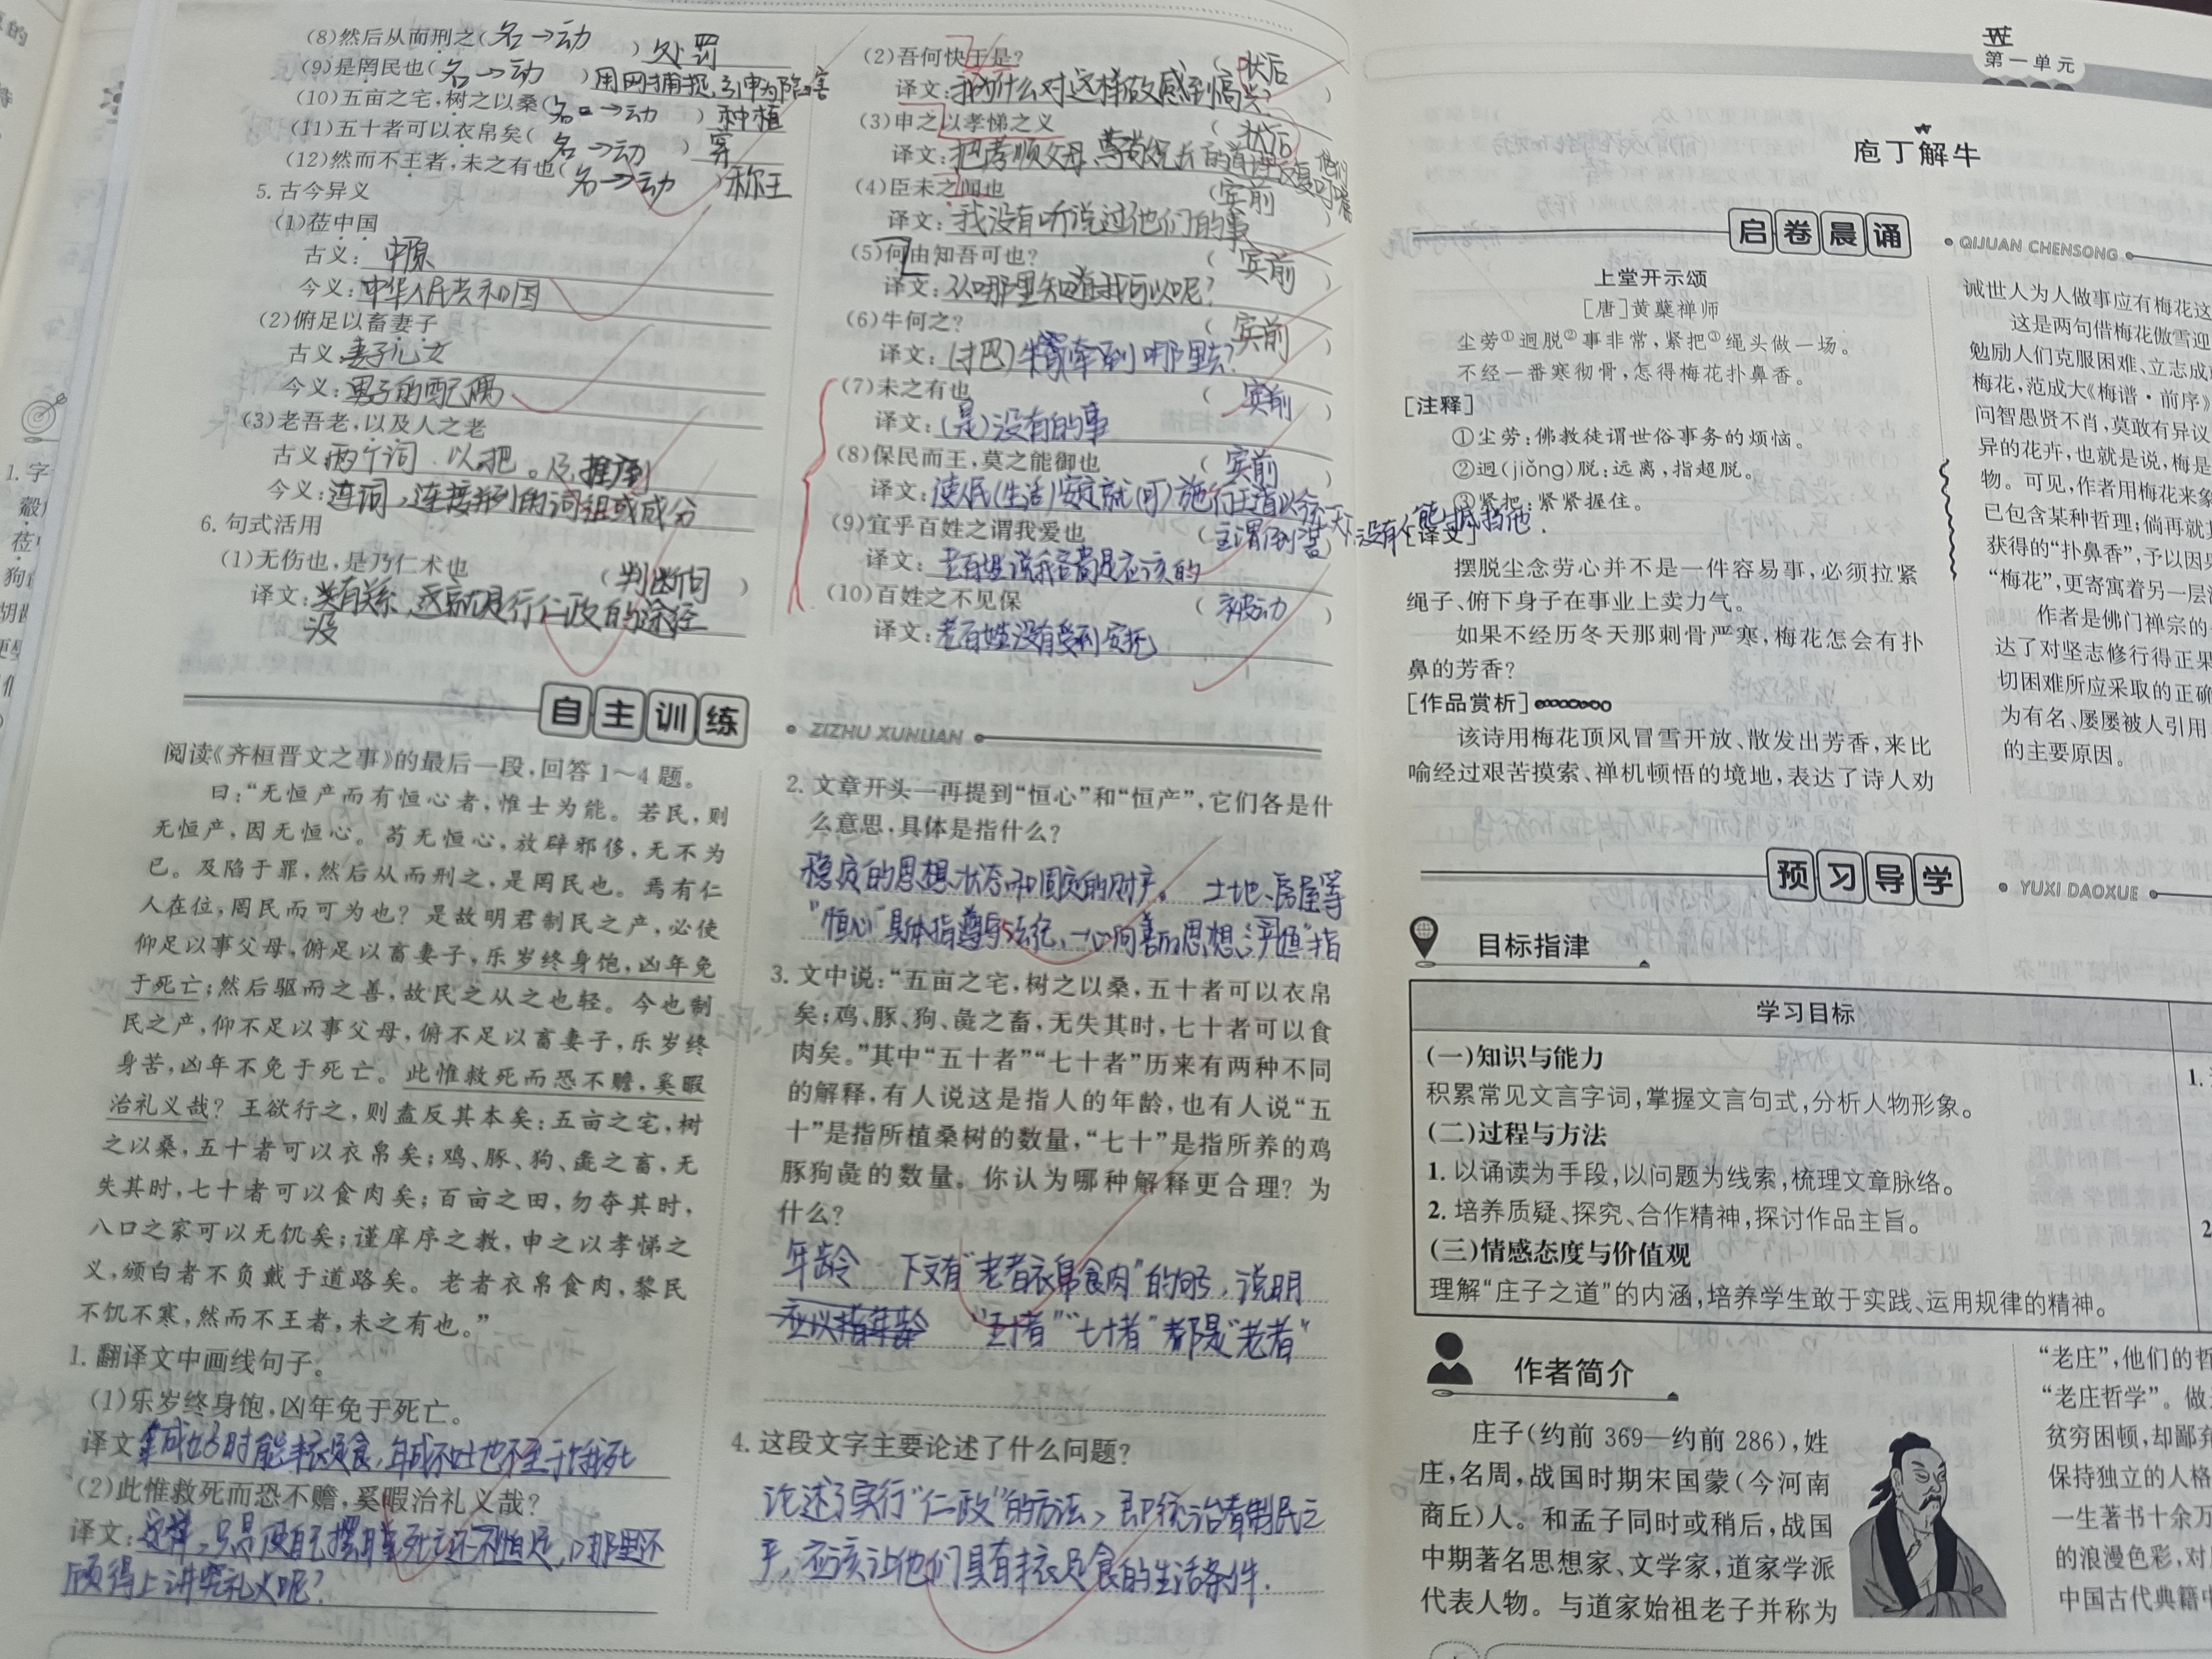 (8)然后从而刑之(名→动)处罚
(9)是罔民也(名→动)用网捕捉,引申为陷害
(10)五亩之宅,树之以桑(名→动)种植
(11)五十者可以衣帛矣(名→动)穿
(12)然而不王者,未之有也(名→动)称王
5.古今异义
(1)莅中国
古义:中原
今义:中华人民共和国
(2)俯足以畜妻子
古义:妻子儿女
今义:男子的配偶
(3)老吾老,以及人之老
古义:两个词.以,把。及,推到
今义:连词,连接并列的词组或成分
6.句式活用
(1)无伤也,是乃仁术也(判断句)
译文:没有关系,这就是行仁政的途径
(2)吾何快于是?(状后)
译文:我为什么对这样做感到高兴?
(3)申之以孝悌之义(状后)
译文:把孝顺父母,尊敬兄长的道理反复叮嘱他们
(4)臣未之闻也(宾前)
译文:我没有听说过他们的事
(5)何由知吾可也?(宾前)
译文:从哪里知道我可以呢?
(6)牛何之?(宾前)
译文:(把)牛牵到哪里去?
(7)未之有也(宾前)
译文:(是)没有的事
(8)保民而王,莫之能御也(宾前)
译文:使人民(生活)安定就(可)施行王道以令天下,没有人能抵挡他.
(9)宜乎百姓之谓我爱也(主谓倒装)
译文:老百姓说我吝啬是应该的
(10)百姓之不见保(被动)
译文:老百姓没有受到安抚
自主训练
ZIZHU XUNLIAN
阅读《齐桓晋文之事》的最后一段,回答1~4题。
曰:“无恒产而有恒心者,惟士为能。若民,则
无恒产,因无恒心。苟无恒心,放辟邪侈,无不为
已。及陷于罪,然后从而刑之,是罔民也。焉有仁
人在位,罔民而可为也?是故明君制民之产,必使
仰足以事父母,俯足以畜妻子,乐岁终身饱,凶年免
于死亡;然后驱而之善,故民之从之也轻。今也制
民之产,仰不足以事父母,俯不足以畜妻子,乐岁终
身苦,凶年不免于死亡。此惟救死而恐不赡,奚暇
治礼义哉?王欲行之,则盍反其本矣:五亩之宅,树
之以桑,五十者可以衣帛矣;鸡、豚、狗、彘之畜,无
失其时,七十者可以食肉矣;百亩之田,勿夺其时,
八口之家可以无饥矣;谨庠序之教,申之以孝悌之
义,颁白者不负戴于道路矣。老者衣帛食肉,黎民
不饥不寒,然而不王者,未之有也。”
1.翻译文中画线句子。
(1)乐岁终身饱,凶年免于死亡。
译文:年成好时能丰衣足食,年成不好也不至于饿死
(2)此惟救死而恐不赡,奚暇治礼义哉?
译文:这样,只是使自己摆脱死亡还不怕足,哪里还
顾得上讲究礼义呢?
2.文章开头一再提到“恒心”和“恒产”,它们各是什
么意思,具体是指什么?
稳定的思想状态和固定的财产。土地、房屋等
“恒心”具体指遵守法纪、一心向善的思想
3.文中说:“五亩之宅,树之以桑,五十者可以衣帛
矣;鸡、豚、狗、彘之畜,无失其时,七十者可以食
肉矣。”其中“五十者”“七十者”历来有两种不同
的解释,有人说这是指人的年龄,也有人说“五
十”是指所植桑树的数量,“七十”是指所养的鸡
豚狗彘的数量。你认为哪种解释更合理?为
什么?
年龄 下文有“老者衣帛食肉”的句子,说明
“五十者”“七十者”都是“老者”
4.这段文字主要论述了什么问题?
论述了实行“仁政”的方法,即统治者制民之
产,应该让他们具有丰衣足食的生活条件.
第一单元
庖丁解牛
启卷晨诵
QIJUAN CHENSONG
上堂开示颂
[唐]黄蘖禅师
尘劳①迥脱②事非常,紧把③绳头做一场。
不经一番寒彻骨,怎得梅花扑鼻香。
[注释]
①尘劳:佛教徒谓世俗事务的烦恼。
②迥(jiǒng)脱:远离,指超脱。
③紧把:紧紧握住。
[译文]
摆脱尘念劳心并不是一件容易事,必须拉紧
绳子、俯下身子在事业上卖力气。
如果不经历冬天那刺骨严寒,梅花怎会有扑
鼻的芳香?
[作品赏析]
该诗用梅花顶风冒雪开放、散发出芳香,来比
喻经过艰苦摸索、禅机顿悟的境地,表达了诗人劝
诫世人为人做事应有梅花这
这是两句借梅花傲雪迎
勉励人们克服困难、立志成
梅花,范成大《梅谱·前序》
问智愚贤不肖,莫敢有异议
异的花卉,也就是说,梅是
物。可见,作者用梅花来象
已包含某种哲理;倘再就
获得的“扑鼻香”,予以因果
“梅花”,更寄寓着另一层
作者是佛门禅宗的
达了对坚志修行得正果
切困难所应采取的正确
为有名、屡屡被人引用
的主要原因。
预习导学
YUXI DAOXUE
目标指津
学习目标
(一)知识与能力
积累常见文言字词,掌握文言句式,分析人物形象。
(二)过程与方法
1.以诵读为手段,以问题为线索,梳理文章脉络。
2.培养质疑、探究、合作精神,探讨作品主旨。
(三)情感态度与价值观
理解“庄子之道”的内涵,培养学生敢于实践、运用规律的精神。
作者简介
庄子(约前369—约前286),姓
庄,名周,战国时期宋国蒙(今河南
商丘)人。和孟子同时或稍后,战国
中期著名思想家、文学家,道家学派
代表人物。与道家始祖老子并称为
“老庄”,他们的哲
“老庄哲学”。做
贫穷困顿,却鄙弃
保持独立的人格
一生著书十余万
的浪漫色彩,对
中国古代典籍中